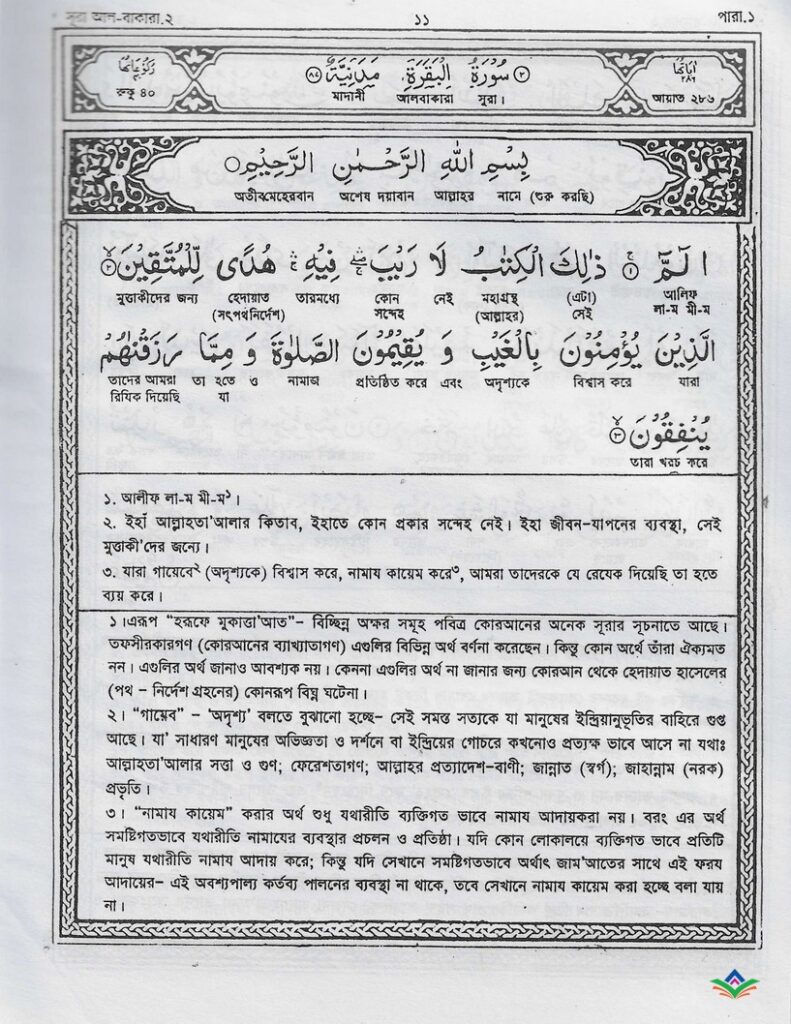 সূরা আল-বাকারা.২ ১১ পারা.১
رُكُوْعَاتُهَا ٤٠ سُوْرَةُ الْبَقَرَةِ مَدَنِيَّةٌ اٰيَاتُهَا ٢٨٦
রুকু ৪০ মাদানী আলবাকারা সূরা। আয়াত ২৮৬
بِسْمِ اللهِ الرَّحْمٰنِ الرَّحِيْمِ
অতীব মেহেরবান অশেষ দয়াবান আল্লাহর নামে (শুরু করছি)
الٓمّٓ ۚ ذٰلِكَ الْكِتٰبُ لَا رَيْبَ ۛ فِيْهِ ۛ هُدًى لِّلْمُتَّقِيْنَ ۙ
মুত্তাকীদের জন্য হেদায়াত তারমধ্যে কোন নেই মহাগ্রন্থ (এটা) আলিফ
(সৎপথনির্দেশ) সন্দেহ (আল্লাহর) সেই লা-ম মী-ম
الَّذِيْنَ يُؤْمِنُوْنَ بِالْغَيْبِ وَ يُقِيْمُوْنَ الصَّلٰوةَ وَ مِمَّا رَزَقْنٰهُمْ
তাদের আমরা তা হতে ও নামাজ প্রতিষ্ঠিত করে এবং অদৃশ্যকে বিশ্বাস করে যারা
রিযিক দিয়েছি যা
يُنْفِقُوْنَ ۙ
তারা খরচ করে
১. আলীফ লা-ম মী-ম১।
২. ইহাঁ আল্লাহতা'আলার কিতাব, ইহাতে কোন প্রকার সন্দেহ নেই। ইহা জীবন-যাপনের ব্যবস্থা, সেই
মুত্তাকী'দের জন্যে।
৩. যারা গায়েবে২ (অদৃশ্যকে) বিশ্বাস করে, নামায কায়েম করে৩, আমরা তাদেরকে যে রেযেক দিয়েছি তা হতে
ব্যয় করে।
১।এরূপ “হরূফে মুকাত্তা'আত”- বিচ্ছিন্ন অক্ষর সমূহ পবিত্র কোরআনের অনেক সূরার সূচনাতে আছে।
তফসীরকারগণ (কোরআনের ব্যাখ্যাতাগণ) এগুলির বিভিন্ন অর্থ বর্ণনা করেছেন। কিন্তু কোন অর্থে তাঁরা ঐক্যমত
নন। এগুলির অর্থ জানাও আবশ্যক নয়। কেননা এগুলির অর্থ না জানার জন্য কোরআন থেকে হেদায়াত হাসেলের
(পথ - নির্দেশ গ্রহনের) কোনরূপ বিঘ্ন ঘটেনা।
২। “গায়েব” - 'অদৃশ্য' বলতে বুঝানো হচ্ছে- সেই সমস্ত সত্যকে যা মানুষের ইন্দ্রিয়ানুভূতির বাহিরে গুপ্ত
আছে। যা' সাধারণ মানুষের অভিজ্ঞতা ও দর্শনে বা ইন্দ্রিয়ের গোচরে কখনোও প্রত্যক্ষ ভাবে আসে না যথাঃ
আল্লাহতা'আলার সত্তা ও গুণ; ফেরেশতাগণ; আল্লাহর প্রত্যাদেশ-বাণী; জান্নাত (স্বর্গ); জাহান্নাম (নরক)
প্রভৃতি।
৩। “নামায কায়েম” করার অর্থ শুধু যথারীতি ব্যক্তিগত ভাবে নামায আদায়করা নয়। বরং এর অর্থ
সমষ্টিগতভাবে যথারীতি নামাযের ব্যবস্থার প্রচলন ও প্রতিষ্ঠা। যদি কোন লোকালয়ে ব্যক্তিগত ভাবে প্রতিটি
মানুষ যথারীতি নামায আদায় করে; কিন্তু যদি সেখানে সমষ্টিগতভাবে অর্থাৎ জাম'আতের সাথে এই ফরয
আদায়ের- এই অবশ্যপাল্য কর্তব্য পালনের ব্যবস্থা না থাকে, তবে সেখানে নামায কায়েম করা হচ্ছে বলা যায়
না।